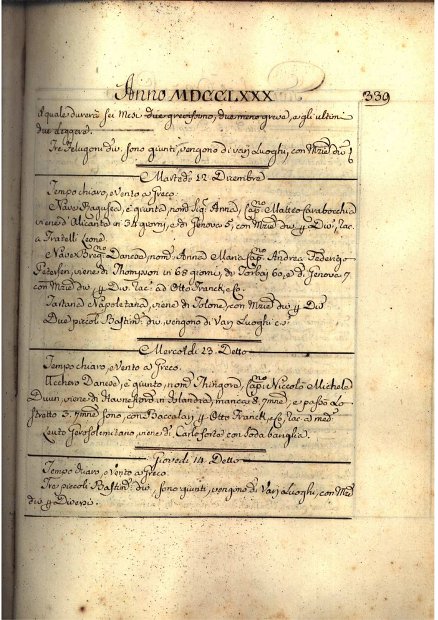 Anno MDCCLXXX
339
quale durerà sei Mesi due grecissimo, due meno greve, e gli ultimi
due leggero.
Tre Felugoni div. sono giunti, vengono di varj Luoghi, con Mrzie div.
Martedì 12 Dicembre
Tempo chiaro, e Vento a Greco.
Nave Ragusea, è giunta, nom. Sig. Anna, Cap.no Matteo Carabocchia
viene d'Alicante in 34 giorni, e di Genova 5, con Mrzie div. p Div. rac.
a Fratelli Leone.
Nave Danese, nom. Anna Maria Cap.no Andrea Federigo
Petersen, viene di Thompson in 68 giorni, di Torbai 60, e di Genova 7
con Mrzie div. p Div. rac. ad Otto Franck, e Co.
Tartana Napoletana, viene di Tolone, con Mrzie div. p Div.
Due piccoli Bastim. div. vengono di Varj Luoghi
Mercoldì 13 Detto
Tempo chiaro, e Vento a Greco.
Danese, è giunto, nom. Cap.no Niccolò Michele
viene di in Islandia, manca 8 7mne, e passò Lo
Stretto 3 7mne sono, con Baccalari p Otto Franck, e Co. rac. a med.
Leuto Gerosolemitano, viene di Carloforte con Soda bariglia.
Giovedì 14 Detto
Tempo chiaro, e Vento a Greco
Tre piccoli Bastim. div. sono giunti, vengono di Varj Luoghi, con Mrzie
div. p Diversi.